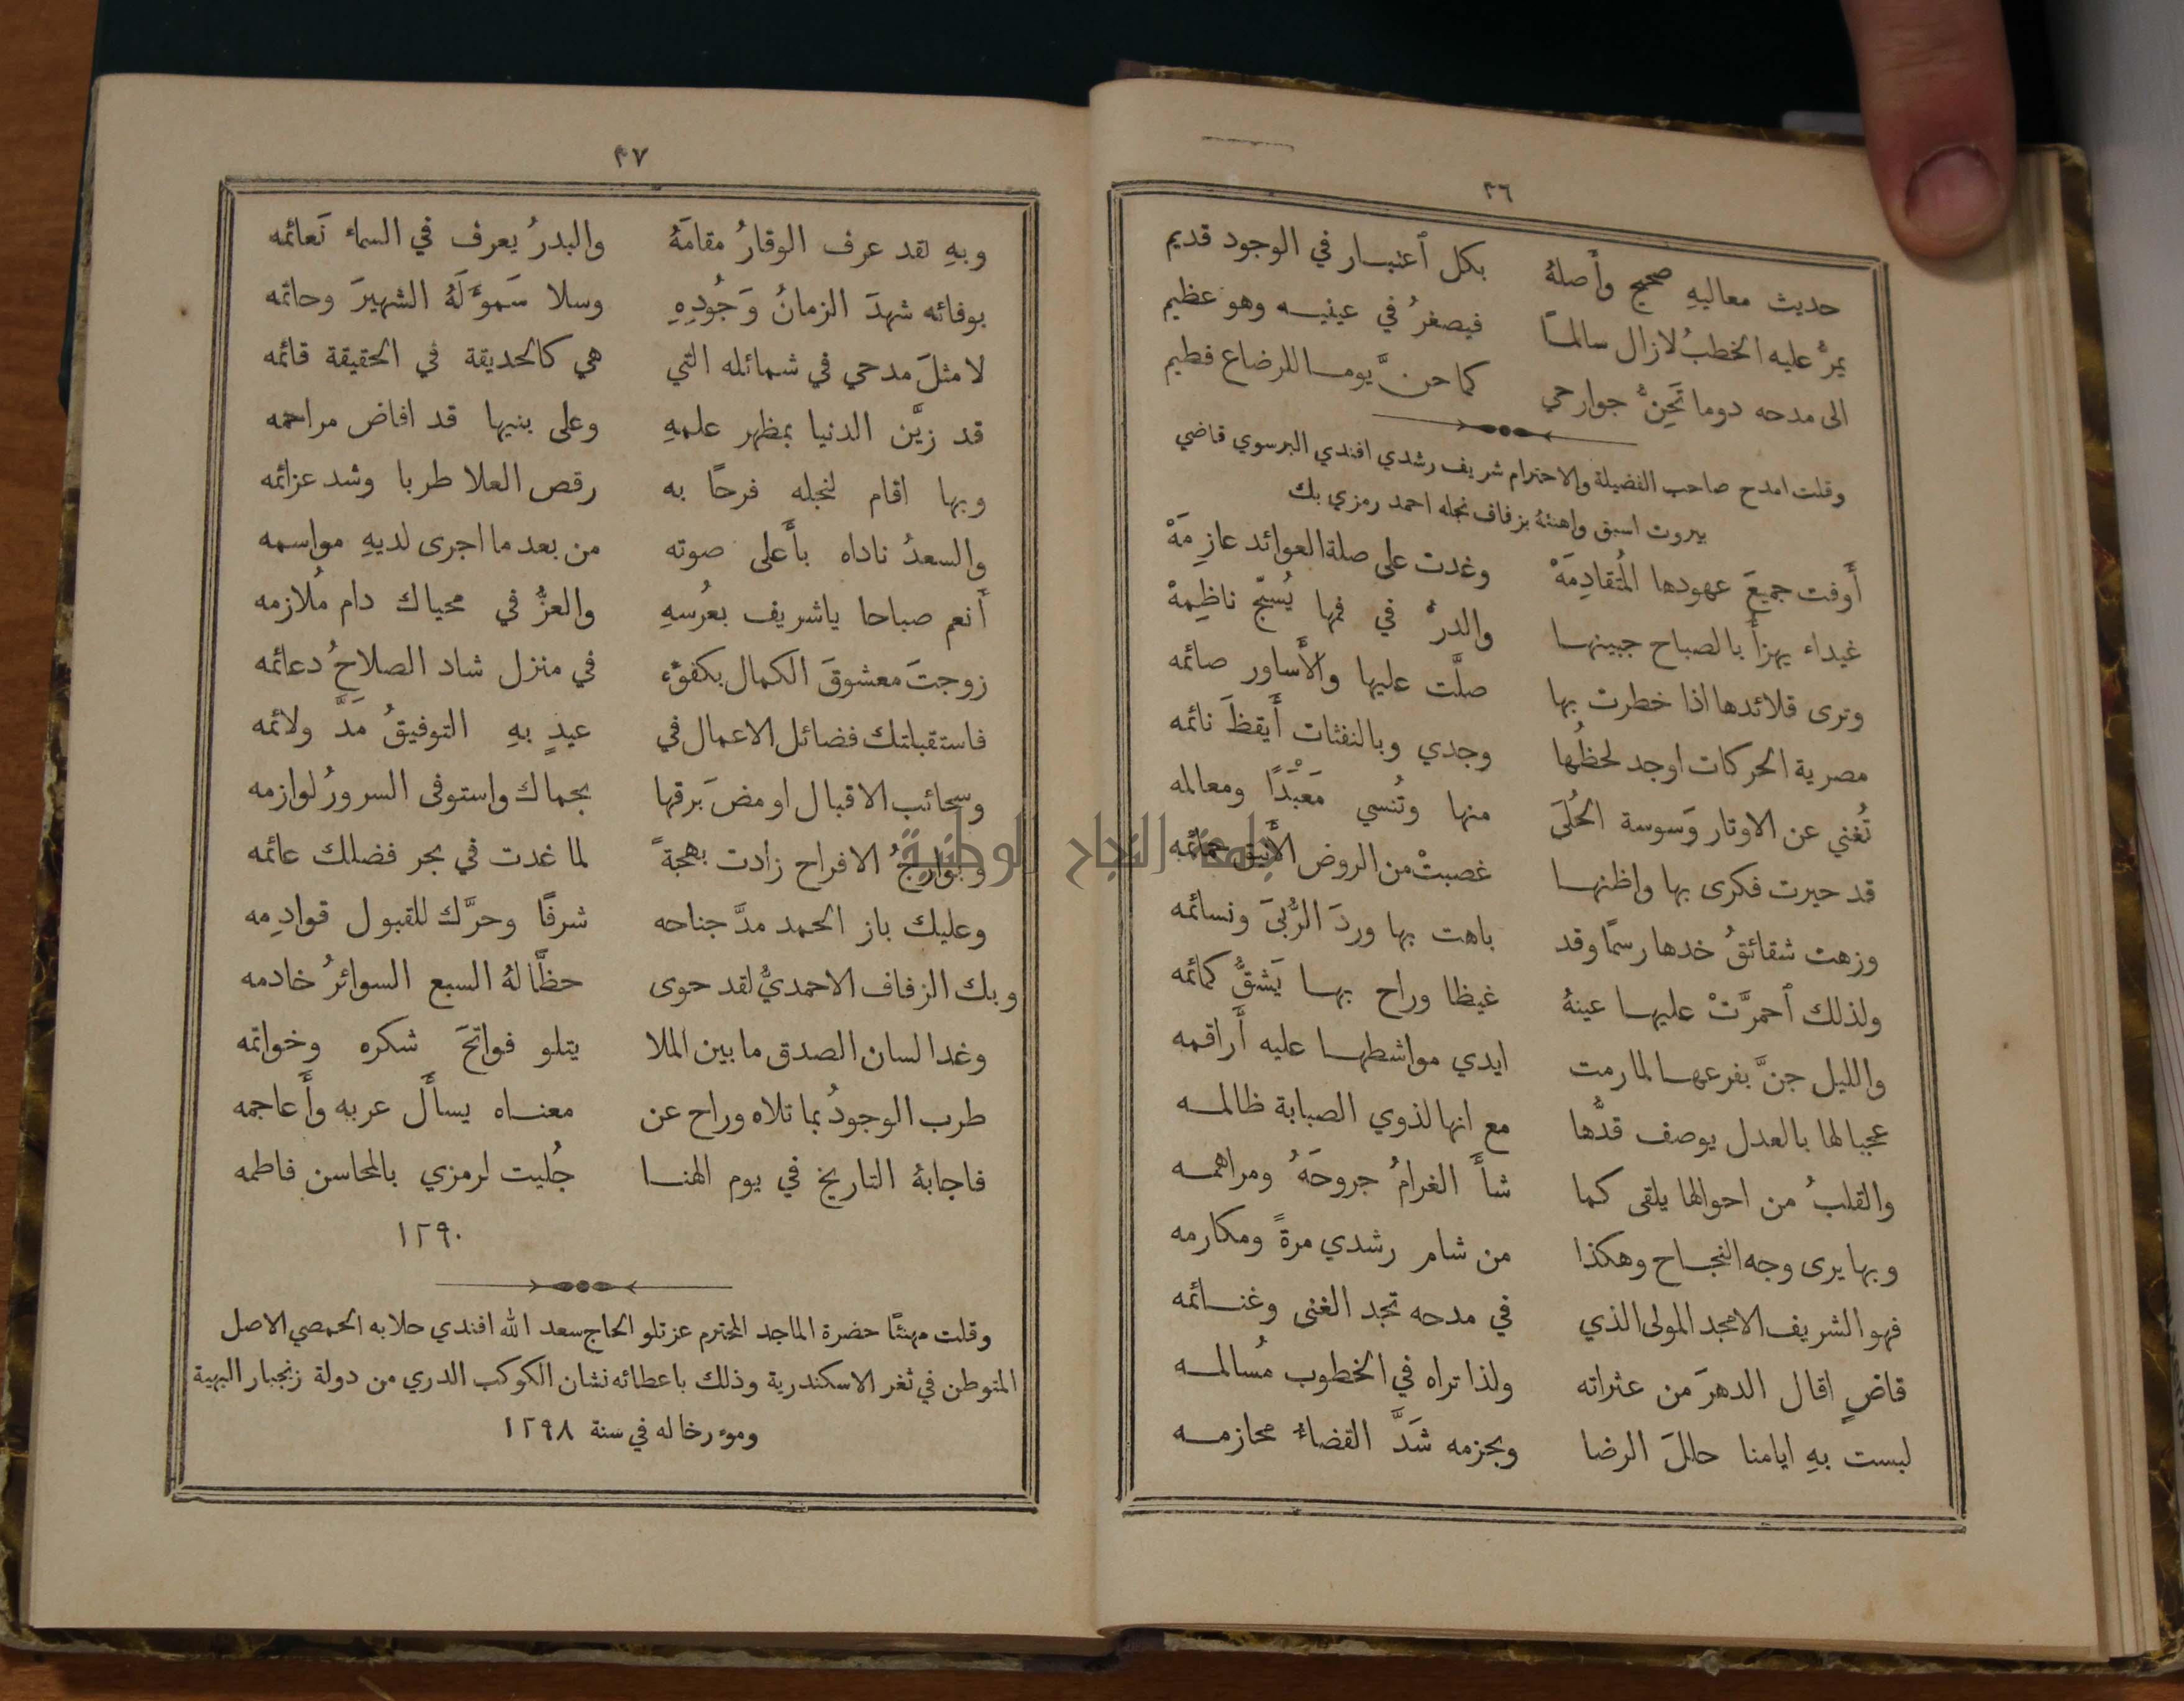 ٣٦
حديث معاليهِ صحيح وأَصلهُ بكل ٱعتبار في الوجود قديم
يمرُّ عليه الخطبُ لازال سالمًا فيصغرُ في عينيه وهو عظيم
الى مدحه دوما تَحِنُّ جوارحي كما حنَّ يوما للرضاع فطيم
وقلت امدح صاحب الفضيلة والاحترام شريف رشدي افندي البرسوي قاضي
بيروت اسبق واهنئهُ بزفاف نجله احمد رمزي بك
أَوفت جميعَ عهودها المُتقادِمَهْ وغدت على صلة العوائد عازِمَهْ
غيداء يهزأُ بالصباح جبينها والدرُّ في فمها يُسبّح ناظِمِهْ
وترى قلائدها اذا خطرت بها صلَّت عليها والأَساور صائمه
مصرية الحركات اوجد لحظُها وجدي وبالنفثات أَيقظَ نائمه
تُغني عن الاوتار وَسوسة الحُلَى منها وتُنسي مَعْبَدًا ومعالمه
قد حيرت فكرى بها واظنها غصبتْ من الروض الأَنيق حمائمه
وزهت شقائقُ خدها رسمًا وقد باهت بها وردَ الرُّبَى ونسائمه
ولذلك ٱحمرَّتْ عليها عينهُ غيظا وراح بها يَشقُّ كمائمه
والليل جنَّ بفرعها لما رمت ايدي مواشطها عليه أَراقمه
عجبا لها بالعدل يوصف قدُّها مع انها لذوي الصبابة ظالمه
والقلبُ من احوالها يلقى كما شأَ الغرامُ جروحَهُ ومراهمه
وبها يرى وجه النجاح وهكذا من شام رشدي مرةً ومكارمه
فهو الشريف الامجد المولى الذي في مدحه تجد الغنى وغنائمه
قاضٍ اقال الدهرَ من عثراته ولذا تراه في الخطوب مُسالمه
لبست بهِ ايامنا حللَ الرضا وبحزمه شَدَّ القضاءُ محازمه
٣٧
وبهِ لقد عرف الوقارُ مقامَهُ والبدرُ يعرف في السماء نَعائمه
بوفائه شهدَ الزمانُ وَجُودِهِ وسلا سَموءَلَهُ الشهيرَ وحاتمه
لا مثلَ مدحي في شمائله التي هي كالحديقة في الحقيقة قائمه
قد زيَّن الدنيا بمظهر علمهِ وعلى بنيها قد افاض مراحمه
وبها اقام لنجله فرحًا به رقص العلا طربا وشد عزائمه
والسعدُ ناداه بأَعلى صوته من بعد ما اجرى لديهِ مواسمه
أَنعم صباحا ياشريف بعُرسهِ والعزُّ في محياك دام مُلازمه
زوجتَ معشوقَ الكمال بكفوءٍ في منزل شاد الصلاحُ دعائمه
فاستقبلتك فضائل الاعمال في عيدٍ بهِ التوفيقُ مدَّ ولائمه
وسحائب الاقبال اومضَ برقها بحماك واستوفى السرورُ لوازمه
وبوارجُ الافراح زادت بهجةً لما غدت في بحر فضلك عائمه
وعليك باز الحمد مدَّ جناحه شرفًا وحرَّك للقبول قوادِمه
وبك الزفاف الاحمديُّ لقد حوى حظًّا لهُ السبع السوائرُ خادمه
وغدا لسان الصدق ما بين الملا يتلو فواتحَ شكره وخواتمه
طرب الوجودُ بما تلاه وراح عن معناه يسأَل عربه وأَعاجمه
فاجابهُ التاريخ في يوم الهنا جُليت لرمزي بالمحاسن فاطمه
١٢٩٠
وقلت مهنئًا حضرة الماجد المحترم عزتلو الحاج سعد الله افندي حلابه الحمصي الاصل
المتوطن في ثغر الاسكندرية وذلك باعطائه نشان الكوكب الدري من دولة زنجبار البهية
وموءرخا له في سنة ١٢٩٨
جامعة النجاح الوطنية